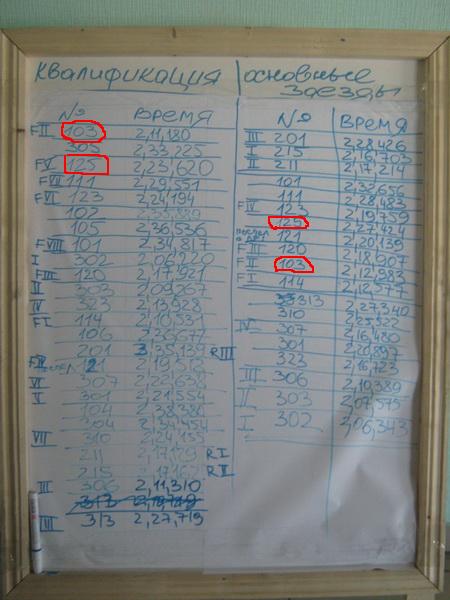 Квалификация
№ Время
FII 103 2,11,180
305 2,33,225
FV 125 2,23,620
FVII 111 2,29,551
FVI 123 2,24,194
102
105 2,36,536
FVIII 101 2,34,817
I 302 2,06,220
FIII 120 2,17,921
II 303 2,09,567
IV 323 2,13,928
FI 114 2,10,531
106
201 RIII
VI 307 2,22,638
V 301 2,21,554
104 2,38,380
304 2,34,454
VII 310 2,24,135
211 RI
215 RII
III 306 2,11,310
313
VII 313 2,27,719
основные заезды
№ Время
III 201 2,28,426
I 215 2,16,703
II 211 2,17,214
101 2,32,656
111 2,28,483
FIV 123 2,19,759
125 2,27,424
121 2,20,139
FIII 120 2,18,007
FII 103 2,12,983
FI 114 2,12,577
313 2,27,340
310 2,25,322
IV 307 2,16,480
301 2,20,897
323 2,16,723
III 306 2,10,389
II 303 2,07,575
I 302 2,06,343